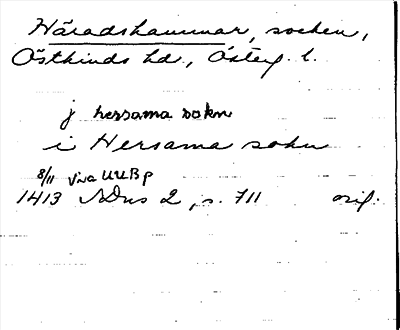 Häradshammar, socken,
Östkinds hd., Österg. l.
j hersama sokn
i Hersama sokn
8/11 Viva UUB p
1413 SDns 2, s. 711 orig.